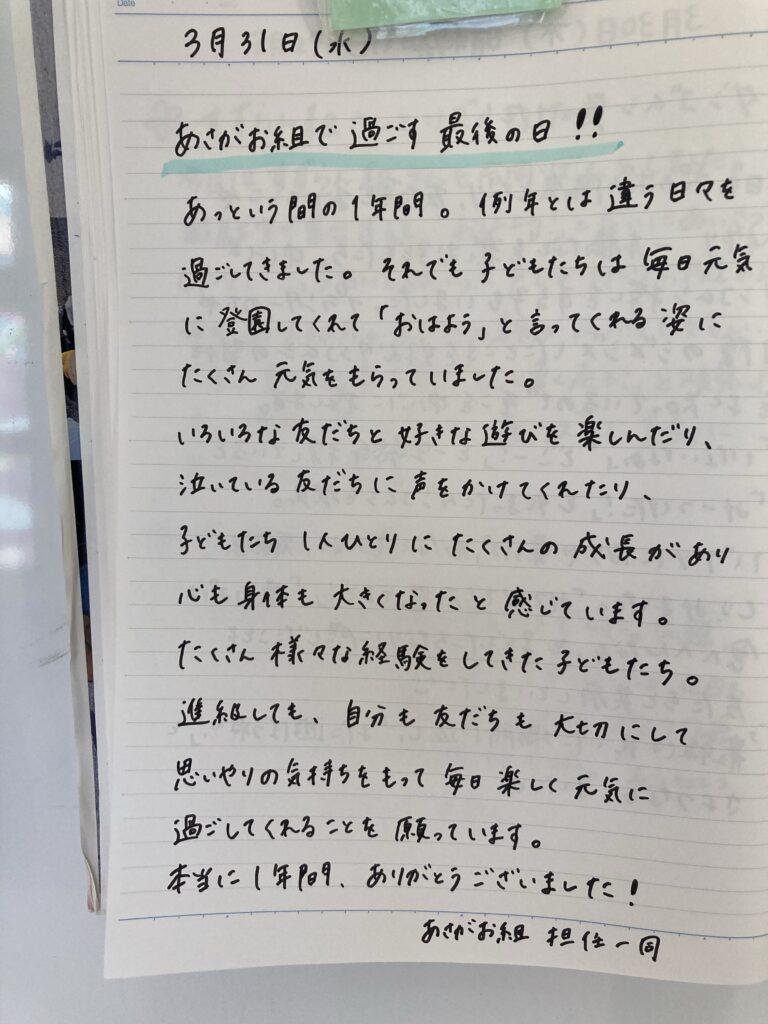 Date
3月31日(水)
あさがお組で過ごす 最後の日!!
あっという間の1年間。例年とは違う日々を
過ごしてきました。それでも子どもたちは毎日元気
に登園してくれて「おはよう」と言ってくれる姿に
たくさん元気をもらっていました。
いろいろな友だちと好きな遊びを楽しんだり、
泣いている友だちに声をかけてくれたり、
子どもたち1人ひとりにたくさんの成長があり
心も身体も大きくなったと感じています。
たくさん様々な経験をしてきた子どもたち。
進組しても、自分も友だちも大切にして
思いやりの気持ちをもって毎日楽しく元気に
過ごしてくれることを願っています。
本当に1年間、ありがとうございました!
あさがお組 担任一同